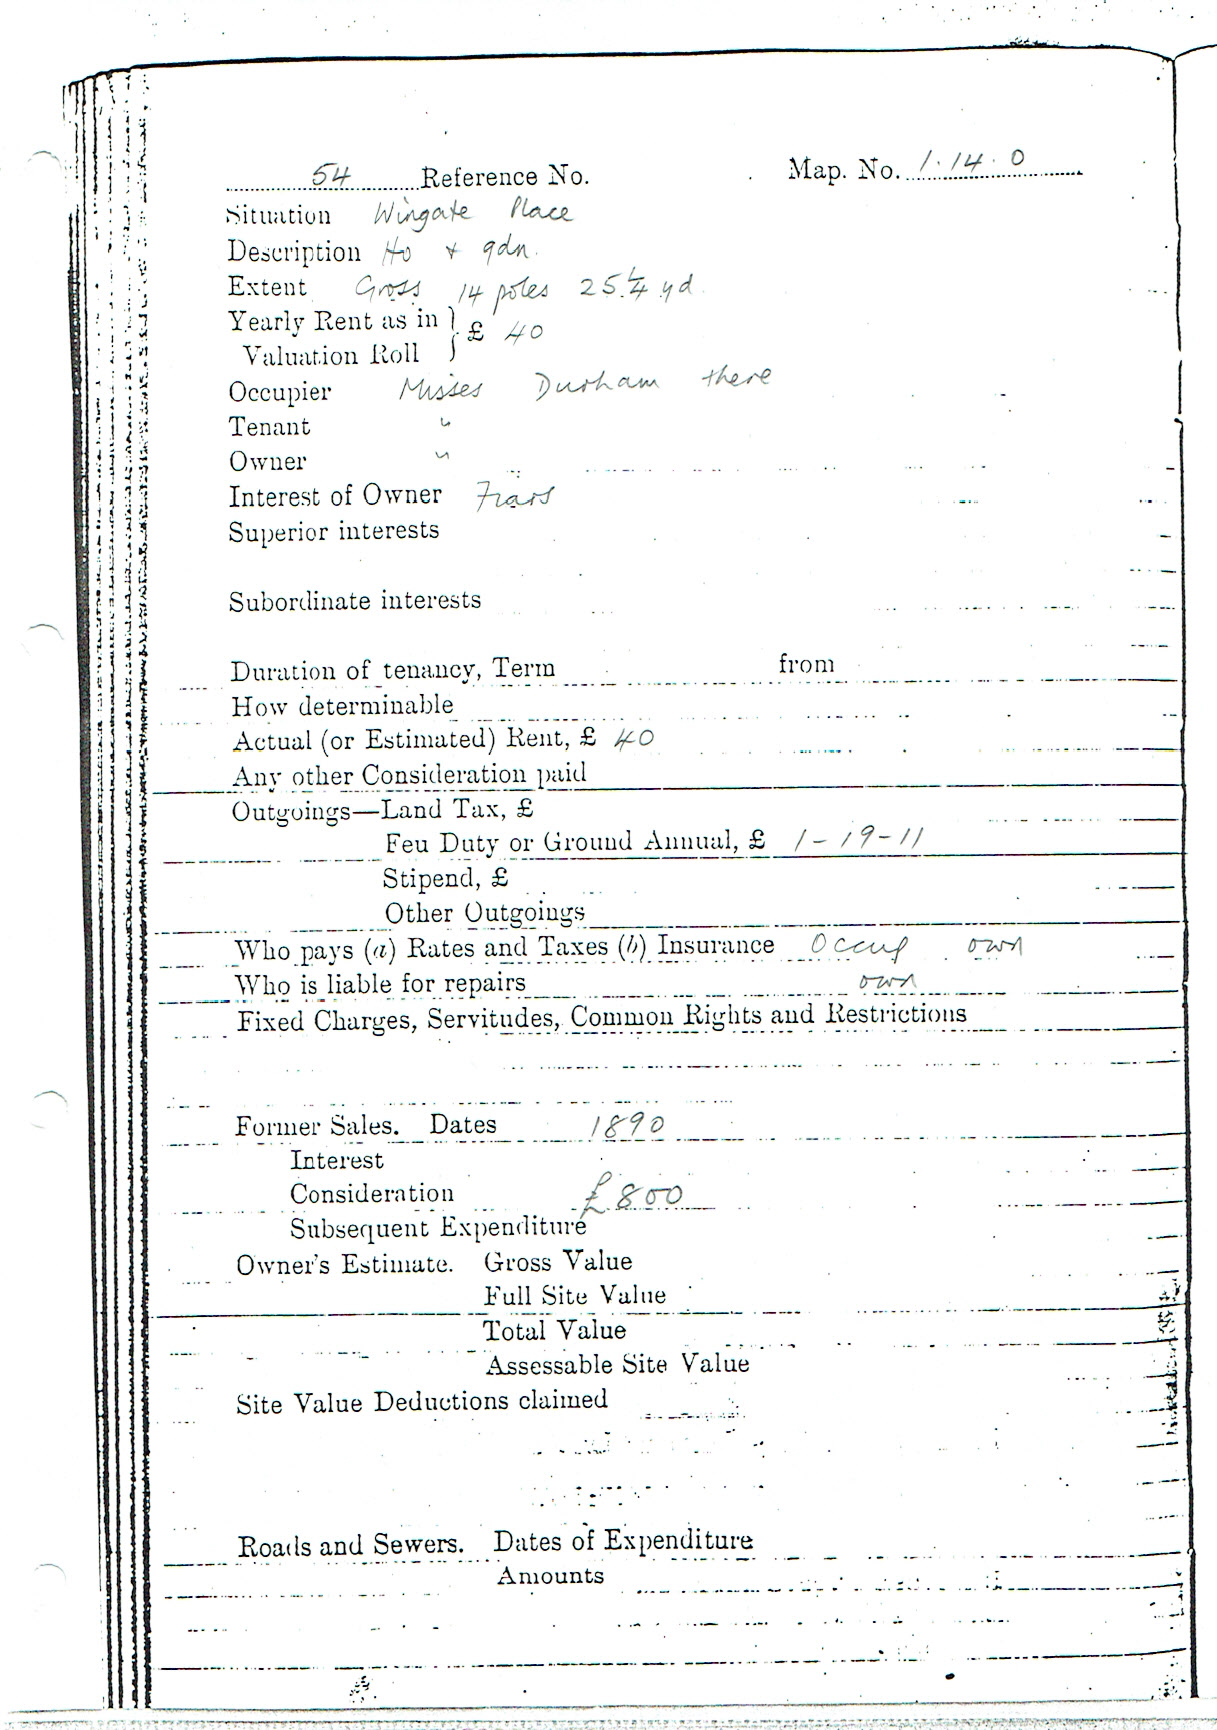 54 Reference No. Map. No. 1.14.0
Situation Wingate Place
Description Ho + gdn.
Extent Gross 14 poles 25 1/4 yd.
Yearly Rent as in } £ 40
Valuation Roll
Occupier Misses Durham there
Tenant "
Owner "
Interest of Owner Fiars
Superior interests
Subordinate interests
Duration of tenancy, Term from
How determinable
Actual (or Estimated) Rent, £ 40
Any other Consideration paid
Outgoings—Land Tax, £
Feu Duty or Ground Annual, £ 1-19-11
Stipend, £
Other Outgoings
Who pays (a) Rates and Taxes (b) Insurance Occup own
Who is liable for repairs own
Fixed Charges, Servitudes, Common Rights and Restrictions
Former Sales. Dates 1890
Interest
Consideration £800
Subsequent Expenditure
Owner's Estimate. Gross Value
Full Site Value
Total Value
Assessable Site Value
Site Value Deductions claimed
Roads and Sewers. Dates of Expenditure
Amounts